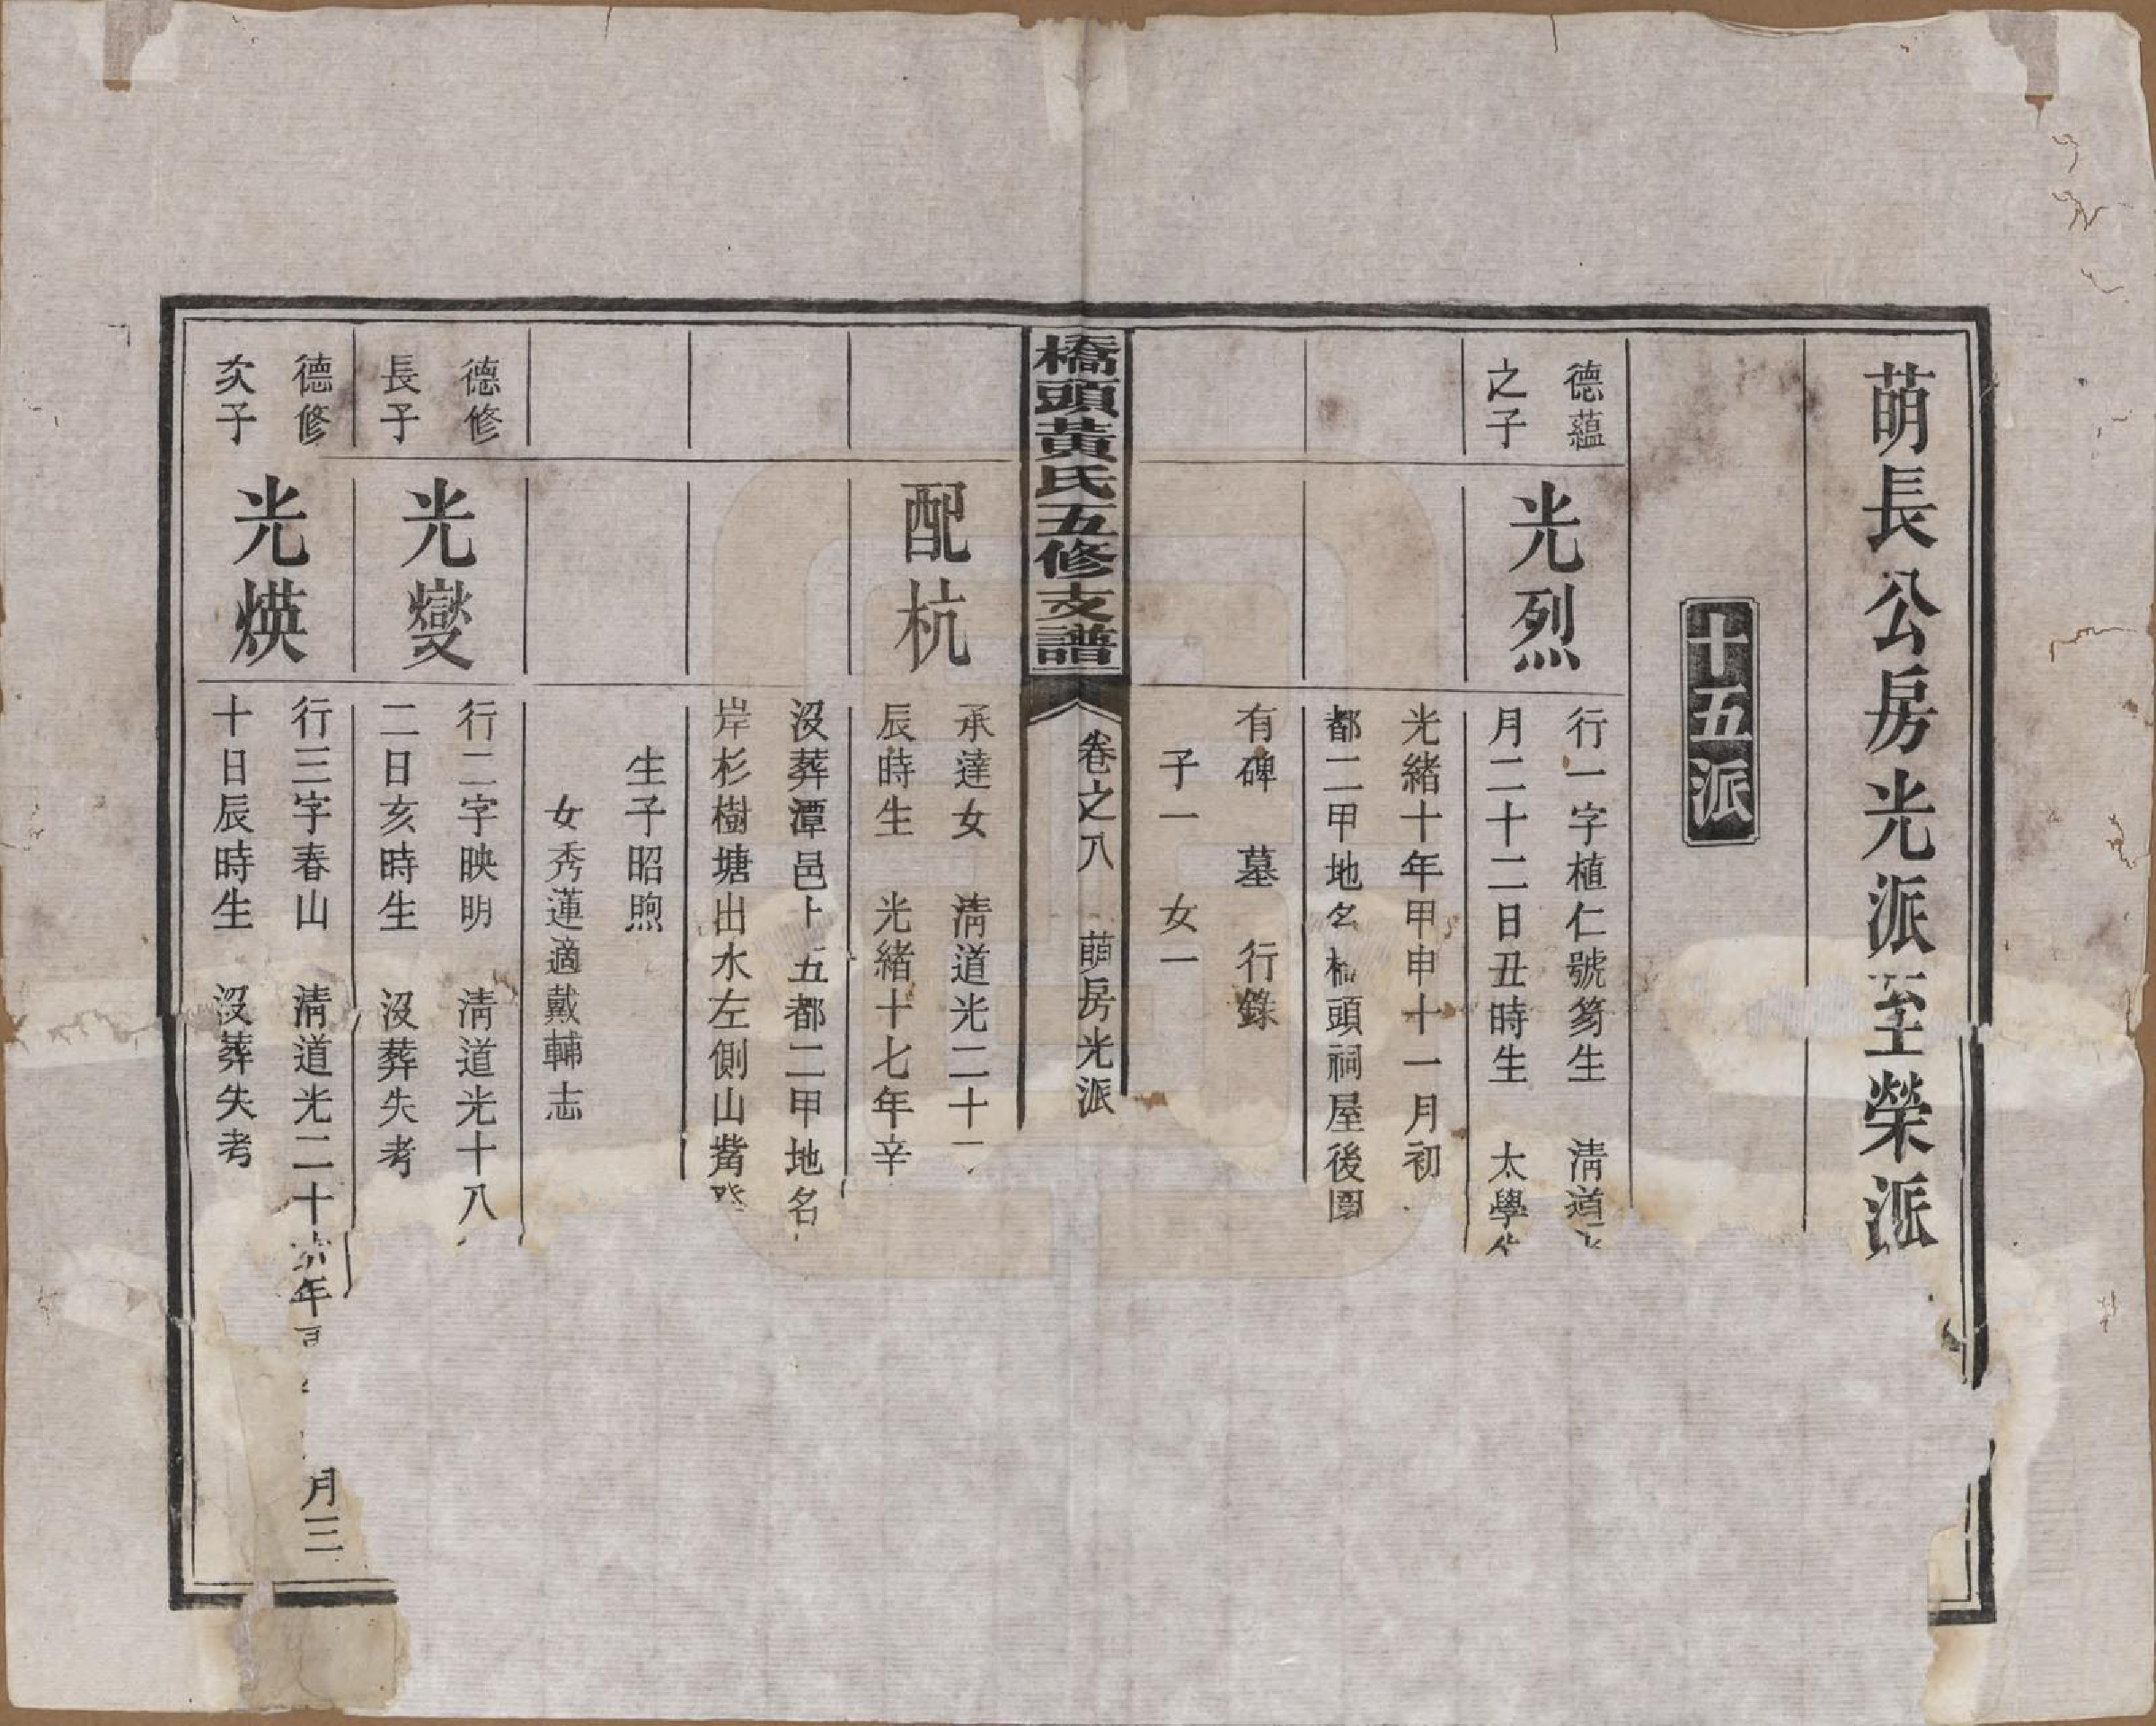 萌長公房光派至榮派
十五派
德蘊
之子
光烈
行一字植仁號芻生 清道
月二十二日丑時生 太學
光緒十年甲申十一月初
都二甲地名 頭祠屋後園
有碑 墓 行錄
子一 女一
橋頭黃氏五修支譜
卷之八 萌房光派
配杭
承達女 清道光二十
辰時生 光緒十七年辛
沒葬潭邑 五都二甲地名
岸杉樹塘出水左側山觜
生子昭煦
女秀蓮適戴輔志
德修
長子
光燮
行二字映明 清道光十八
二日亥時生 沒葬失考
德修
次子
光煐
行三字春山 清道光二十 年 月三
十日辰時生 沒葬失考